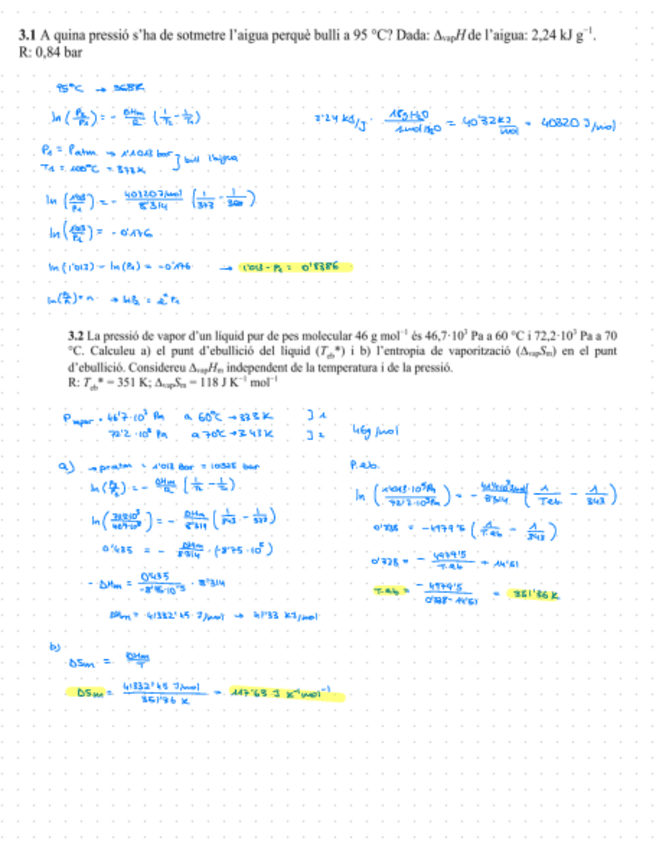 3.1 A quina pressió s'ha de sotmetre l'aigua perquè bulli a 95 °C? Dada: ΔvapH de l'aigua: 2,24 kJ g⁻¹.
R: 0,84 bar
95°C → 368K
ln (P₂/P₁) = - ΔHm/R (1/T₂ - 1/T₁)
2'24 kJ/g · 18g H₂O / 1mol H₂O = 40'32 kJ/mol = 40320 J/mol
P₁ = Patm → 1'1013 bar
T₁ = 100°C = 373K } bull l'aigua
= - 40320 J/mol / 8'314
= - 0'176
ln (1'013) - ln (P₂) = -0'176 → 1'013 - P₂ = 0'8386
3.2 La pressió de vapor d'un líquid pur de pes molecular 46 g mol⁻¹ és 46,7·10³ Pa a 60 °C i 72,2·10³ Pa a 70
°C. Calculeu a) el punt d'ebullició del líquid (Teb*) i b) l'entropia de vaporització (ΔvapSm) en el punt
d'ebullició. Considereu ΔvapHm independent de la temperatura i de la pressió.
R: Teb* = 351 K; ΔvapSm = 118 J K⁻¹ mol⁻¹
Pvapor = 46'7·10³ Pa a 60°C → 333K } 1
72'2·10³ Pa a 70°C → 343K } 2
46g/mol
a) → patm = 1'013 Bar =
ln (P₂/P₁) = - ΔHm/R (1/T₂ - 1/T₁)
ln (72'2·10³ / 46'7·10³) = - ΔHm/8'314 (1/343 - 1/333)
0'435 = - ΔHm/8'314 · (-8'75·10⁻⁵)
- ΔHm = 0'435 / -8'75·10⁻⁵ · 8'314
ΔHm = 41332'45 J/mol → 41'33 kJ/mol
P.eb.
(1/Teb - 1/343)
= -4979'5 (1/Teb - 1/343)
= - 4979'5 / Teb + 14'51
Teb = = 351'36 K
b)
ΔSm = ΔHm/T
ΔSm = 41332'45 J/mol / 351'36 K = 117'63 J K⁻¹mol⁻¹